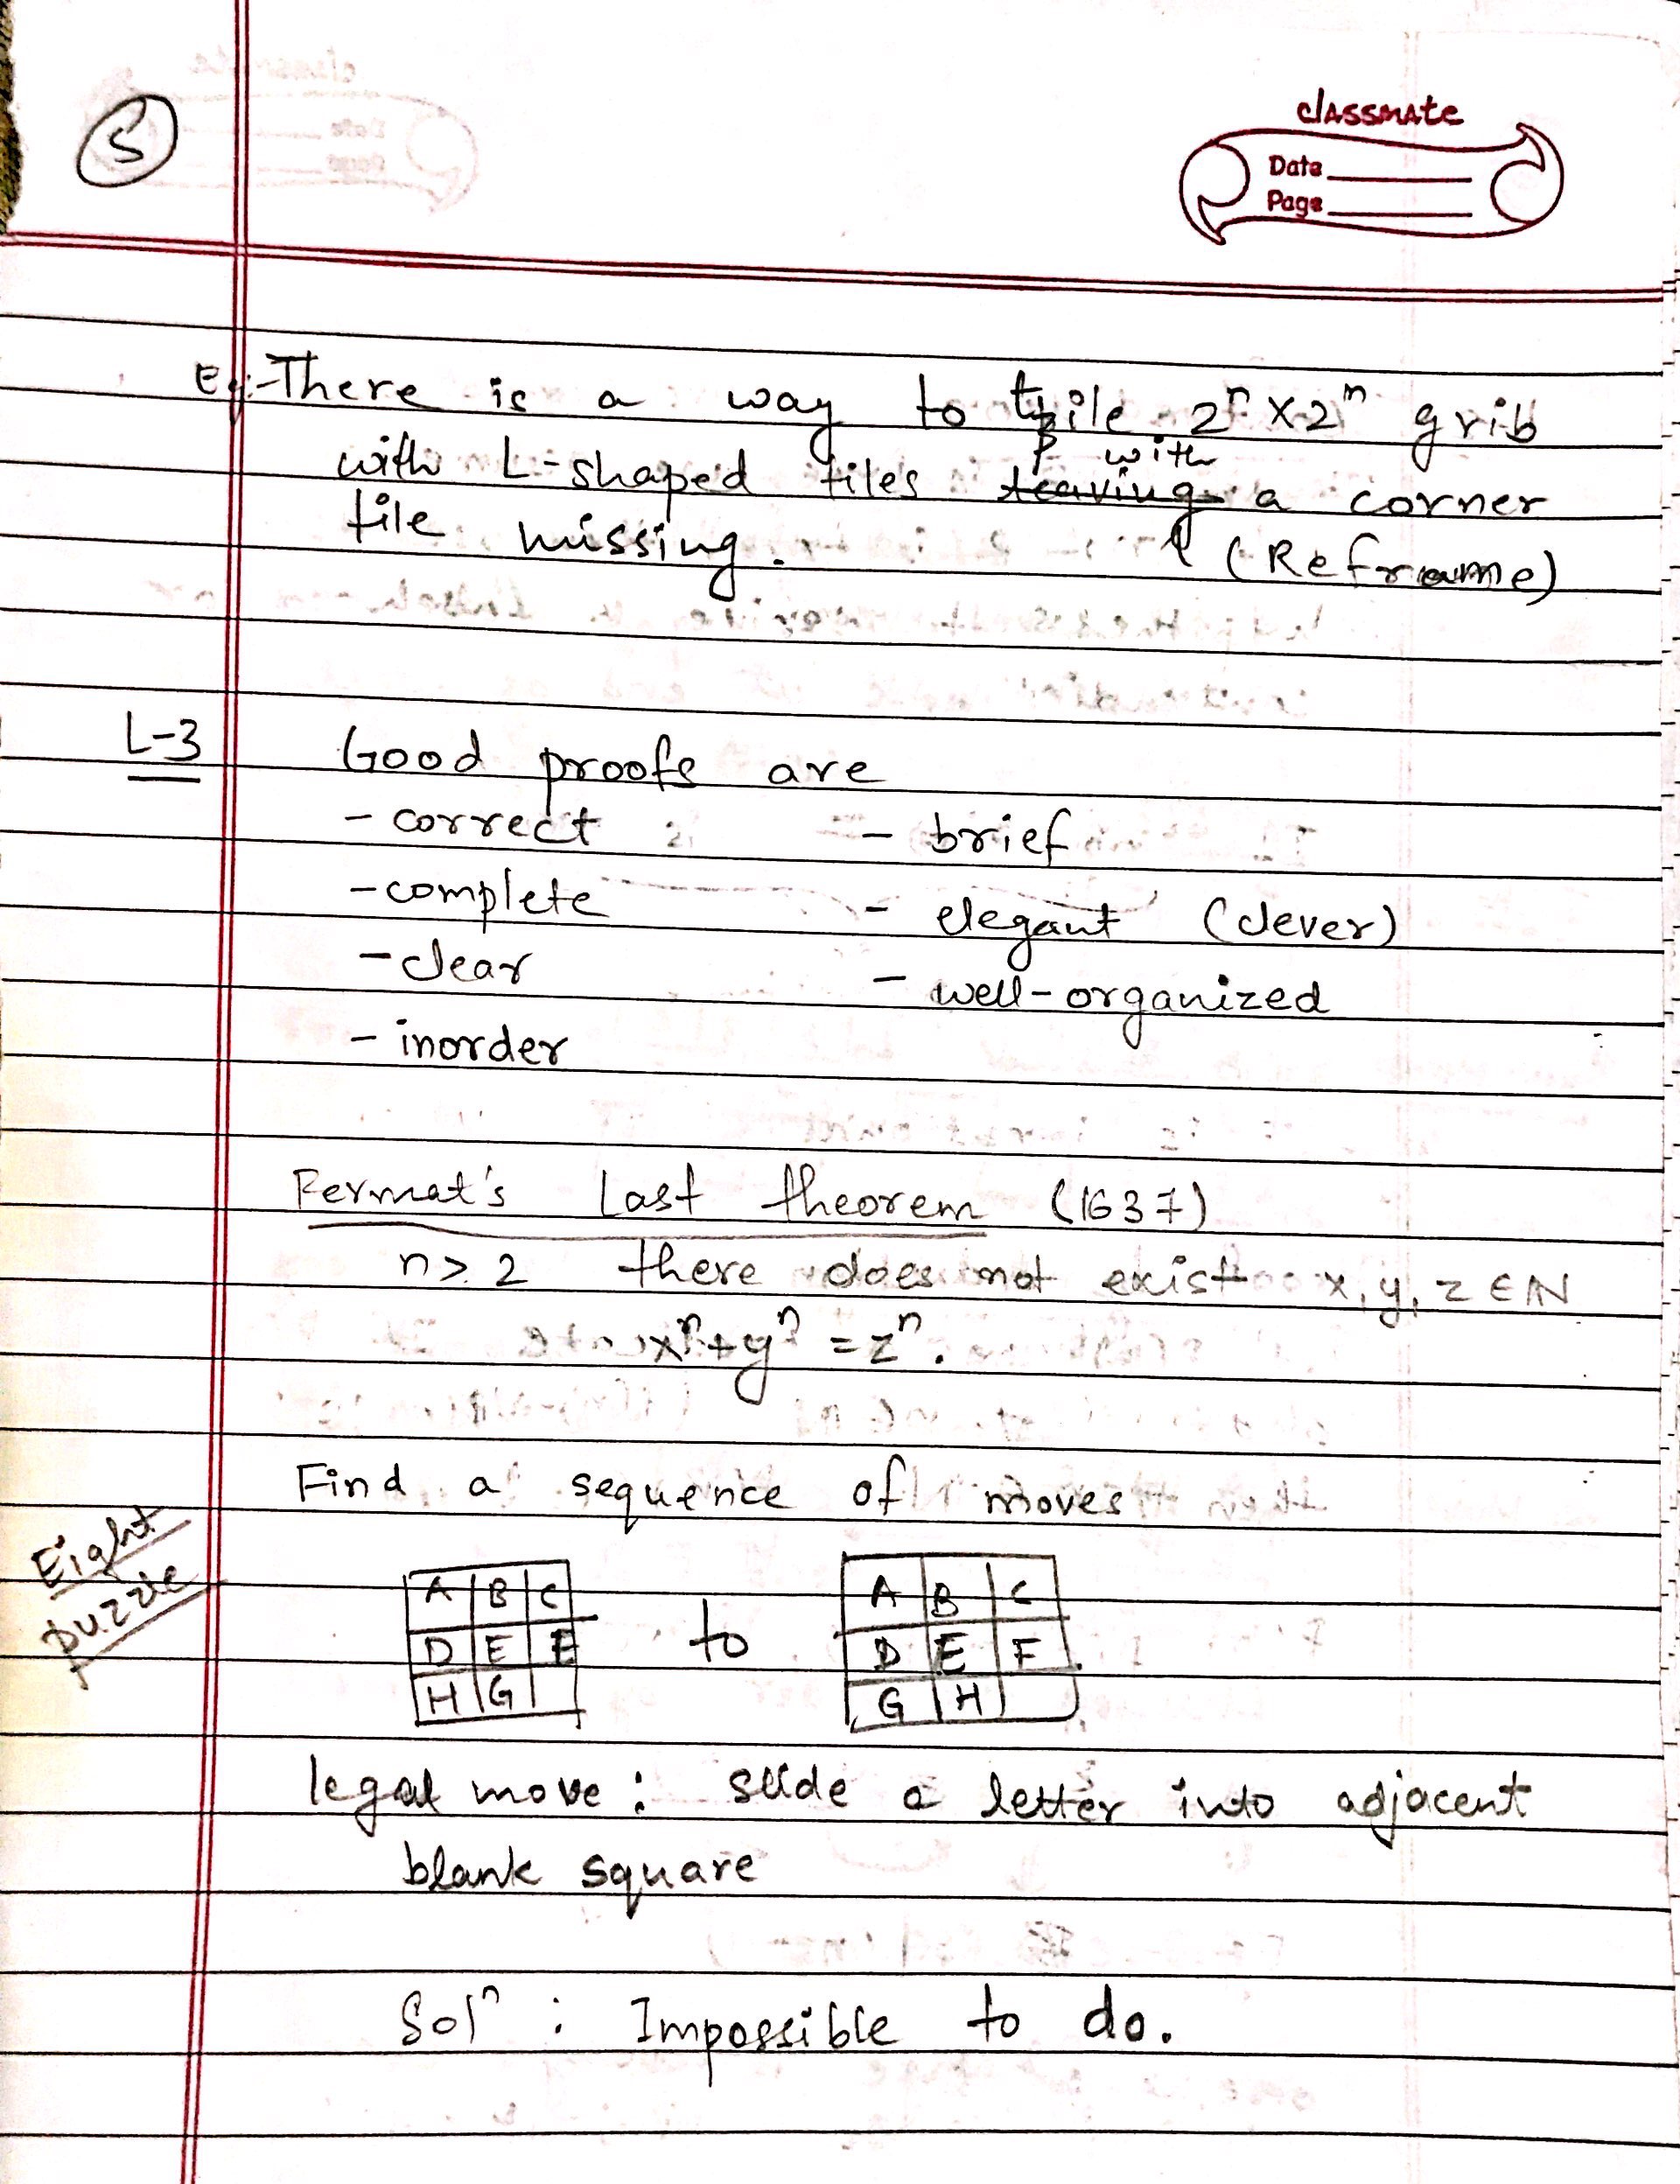 5
classmate
Date
Page
Eg:- There is a way to tile 2ⁿ x 2ⁿ grib
with L-shaped tiles with a corner
tile missing. (Reframe)
L-3 Good proofs are
- correct - brief
- complete - elegant (clever)
- clear - well-organized
- inorder
Fermat's Last theorem (1637)
n > 2 there does not exist x, y, z ∈ N
xⁿ + yⁿ = zⁿ.
Find a sequence of moves
Eight
puzzle
A B C A B C
D E F to D E F
H G G H
legal move : slide a letter into adjacent
blank square
Solⁿ : Impossible to do.